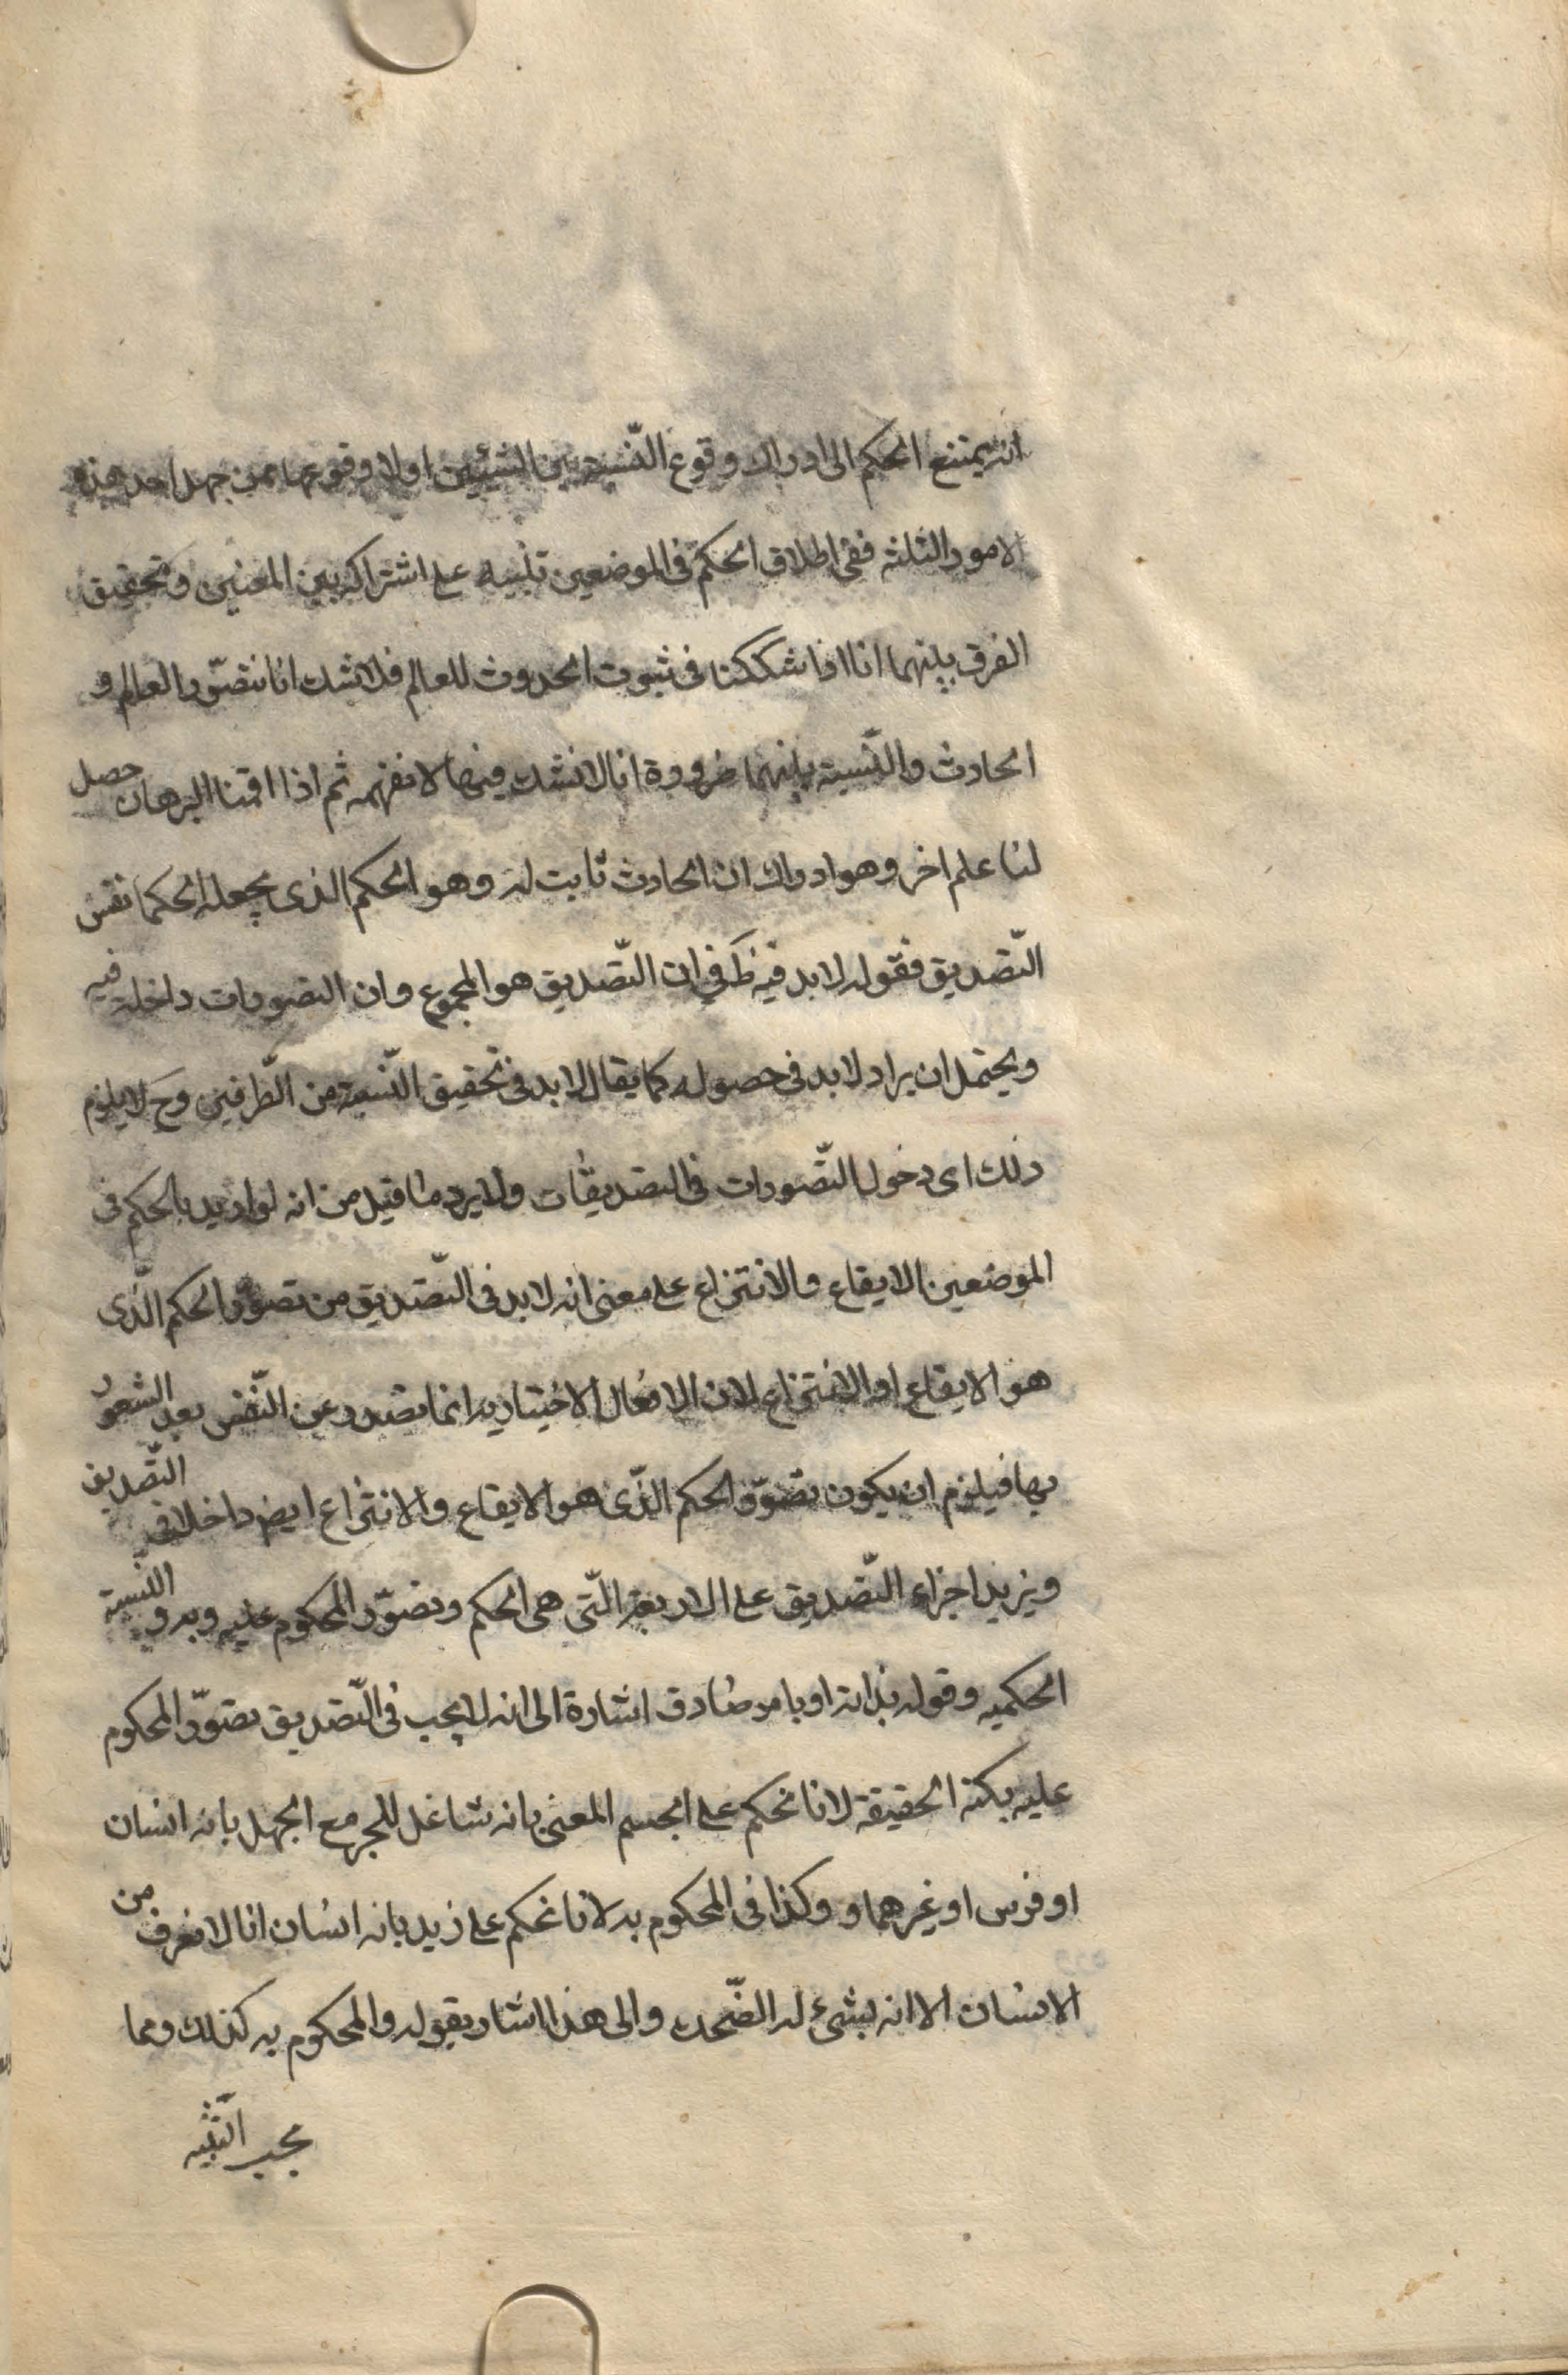 انه يمتنع الحكم الى ادراك وقوع النّسبة بين الشيئين اولا وقوعها ممن جهل احد هذه
الامور الثلثه ففى اطلاق الحكم فى الموضعين تنبيه على اشتراكه بين المعنيين و تحقيق
الفرق بينهما انا اذا شككنا فى ثبوت الحدوث للعالم فلا شك انا نتصّور العالم و
الحادث والنّسبة بينهما ضرورة انا لا نشك فيما لا نفهمه ثم اذا اقمنا البرهان حصل
لنا علم اخر وهو ادراك ان الحادث ثابت له وهو الحكم الذى يجعله الحكما نفس
التّصديق فقوله لا بد فيه ظ فى ان التّصديق هو المجموع وان التصورات داخلة فيه
ويحتمل ان يراد لا بد فى حصوله كما يقال لا بد فى تحقيق النّسبة من الطّرفين وح لا يلزم
ذلك اى دخول التّصورات فى التصديقات ولا يرد ما قيل من انه لو اريد بالحكم فى
الموضعين الايقاع والانتزاع على معنى انه لا بد فى التّصديق من تصوّر الحكم الّذى
هو الايقاع او الانتزاع لان الافعال الاختياريه انما تصدر عن النّفس بعد الشعور
بها فيلزم ان يكون تصوّر الحكم الذّى هو الايقاع والانتزاع ايض داخلا فى التّصديق
ويزيد اجزاء التّصديق على الاربعة الّتى هى الحكم وتصوّر المحكوم عليه وبه و النّسبة
الحكميه وقوله بذاته او بامر صادق اشارة الى انه لا يجب فى التّصديق تصوّر المحكوم
عليه بكنه الحقيقة لانا نحكم على الجسم المعنى بانه شاغل للحيز مع الجهل بانه انسان
او فرس او غيرهما و وكذا فى المحكوم به لانا نحكم على زيد بانه انسان انا لا نعرف من
الانسان الا انه بشئ له الضّحك والى هذا اشار بقوله والمحكوم به كذلك ومما
يجب التّنبيه